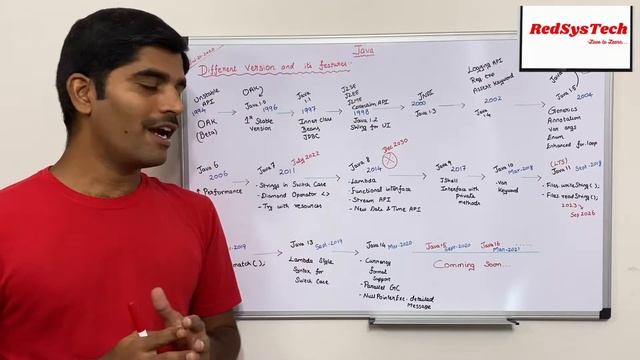 RedSysTech
-Love to Learn...
Java
Different version and its features:
Unstable
API
1994
OAK
(Beta)
OAK
Java 1.0
1996
1st Stable
Version
Java
1.1
1997
Inner Class
Beans
JDBC
J2SE
J2EE
J2ME
Collection API
1998
Java 1.2
String for UI
JNDI
2000
Java 1.3
Logging API
Reg exp
Assert Keyword
2002
Java
1.4
2004
Generics
Annotation
Var args
Enum
Enhanced for loop
Java 6
2006
↑ Performance
Java 7
July 2022
2011
- Strings in Switch Case
- Diamond Operator <>
- Try with resources
Dec 2030
Java 8
2014
- Lambda
- Functional interface
- Stream API
- New Date & Time API
Java 9
2017
- JShell
Interface with
private
methods
Java 10
Mar-2018
- Var
Keyword
(LTS)
Java 11
Sept-2018
- Files.writeString();
- Files.readString();
2023
Sep 2026
-2019
match();
Java 13
Sept-2019
Lambda Style
Syntax for
Switch Case
Java 14
Mar-2020
- Currency
format
Support
- Parallel GC
- NullPointerExc-detailed
Message
Java 15
Sept-2020
Java 16
Mar-2021
Comming Soon...